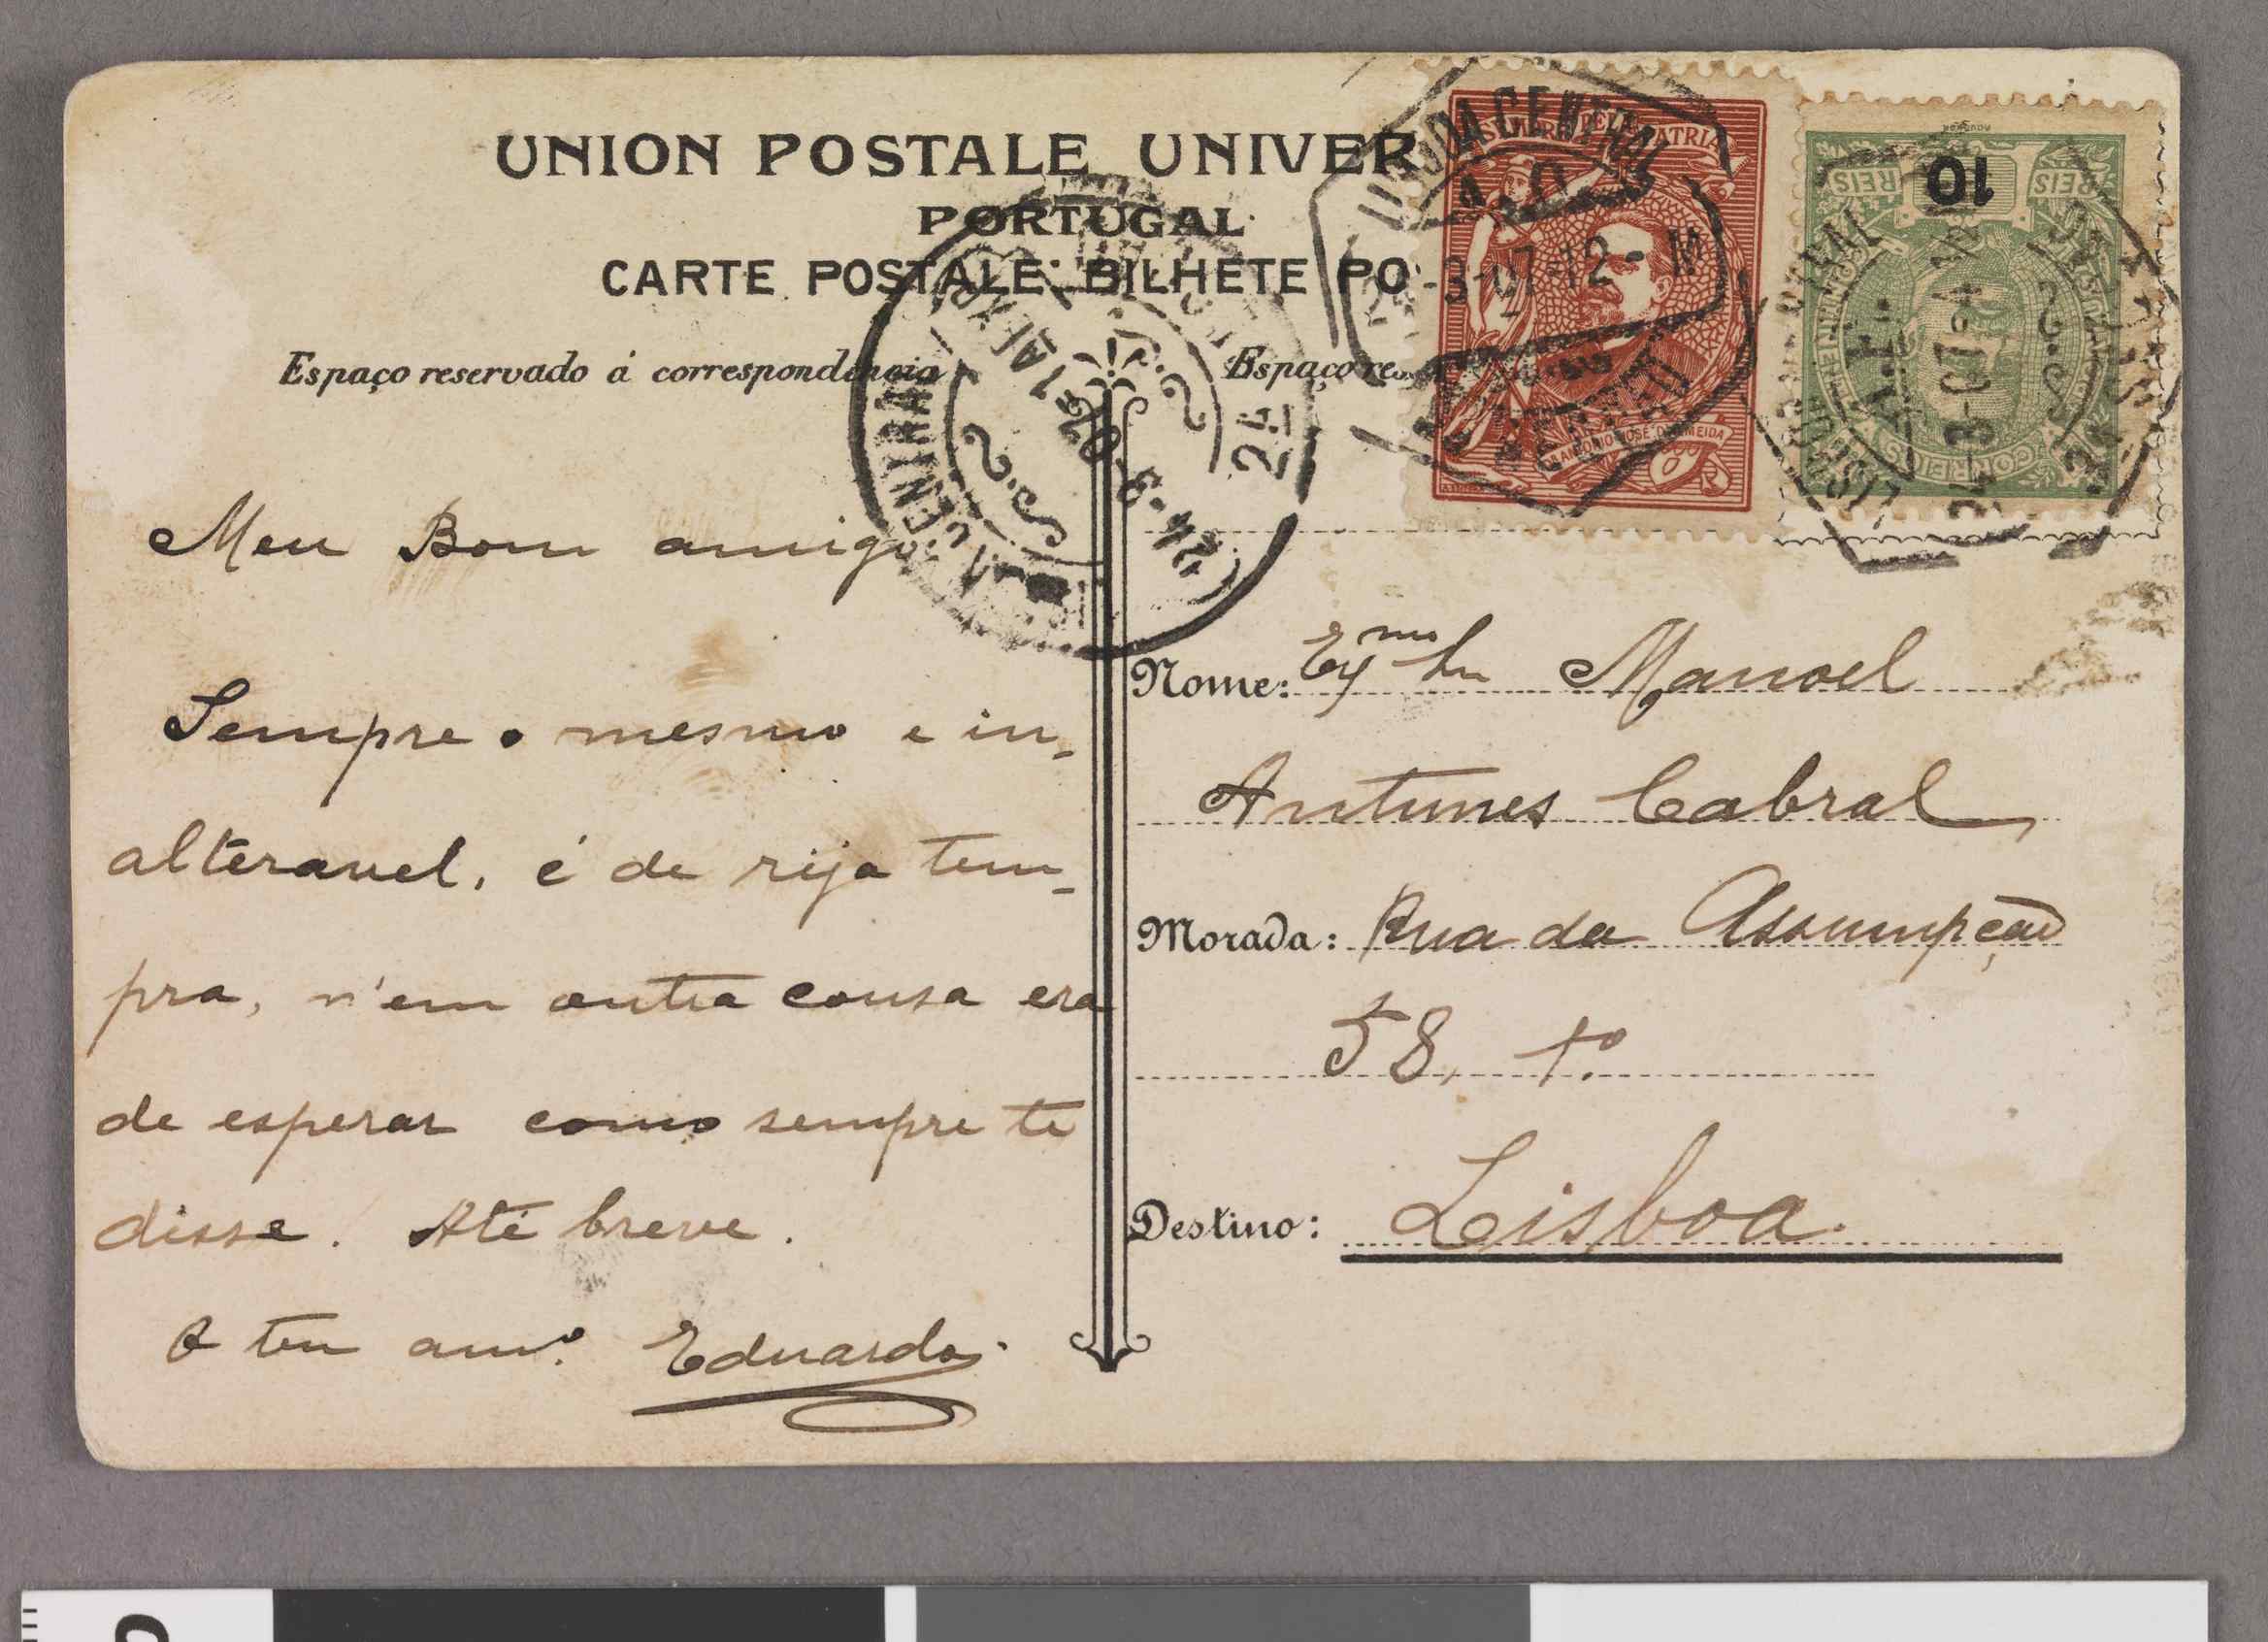 UNION POSTALE UNIVER
PORTUGAL
CARTE POSTALE: BILHETE PO
Espaço reservado á correspondencia
Espaço res
SEMPRE PELA PATRIA
LISBOA CENTRAL
3-07 12-M
ANTONIO JOSÉ D'ALMEIDA
REIS 10 REIS
CORREIOS
LISBOA CENTRAL
24-3-07
CENTRAL
24-3-07
1ª
Meu Bom amigo
Sempre o mesmo e in-
alteravel, é de rija tem-
pra, n'em outra cousa era
de esperar como sempre te
disse. Até breve.
O teu amº. Eduardo.
Nome: Exmo Sr Manoel
Antunes Cabral
Morada: Rua da Assumpção
58, 1º
Destino: Lisboa.